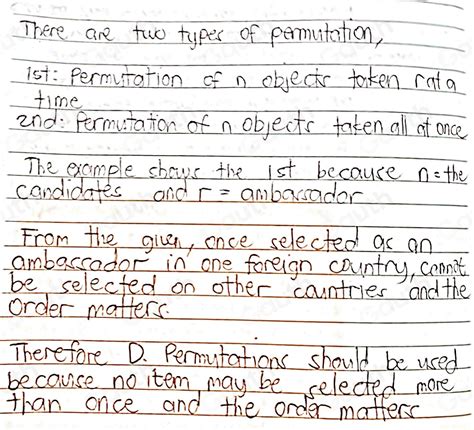 There are two types of permutation,
1st: Permutation of n objects taken r at a
time
2nd: Permutation of n objects taken all at once
The example shows the 1st because n = the
candidates and r = ambassador
From the given, once selected as an
ambassador in one foreign country, cannot
be selected on other countries and the
order matters.
Therefore D. Permutations should be used
because no item may be selected more
than once and the order matters